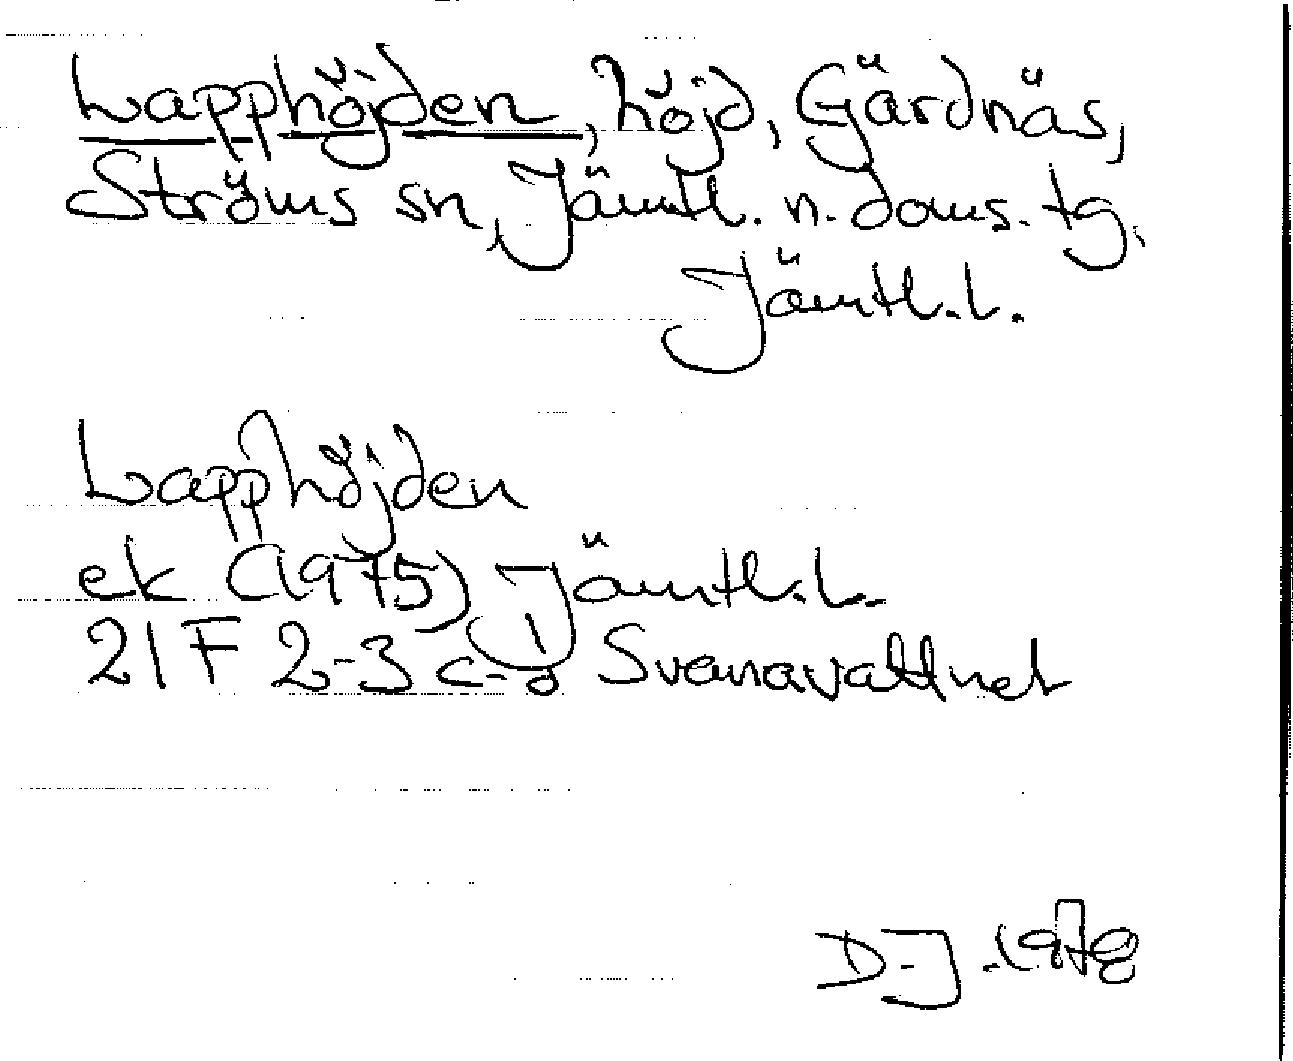 Lapphöjden, höjd, Gärdnäs,
Ströms sn, Jämtl. n. doms. tg,
Jämtl. l.
Lapphöjden
ek (1975) Jämtl. l.
21 F 2-3 c-d Svanavattnet
D-J 1978